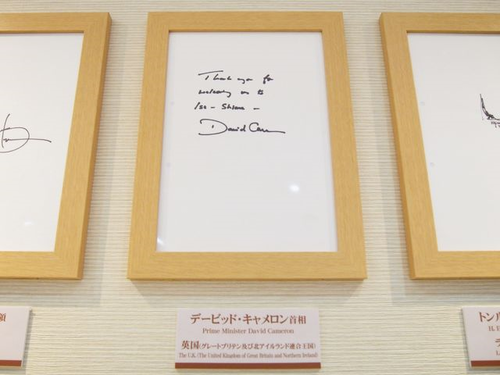 Thank you for
welcoming us to
Ise-Shima-
David Cameron
領
デービッド・キャメロン首相
Prime Minister David Cameron
英国(グレートブリテン及び北アイルランド連合王国)
The U.K. (The United Kingdom of Great Britain and Northern Ireland)